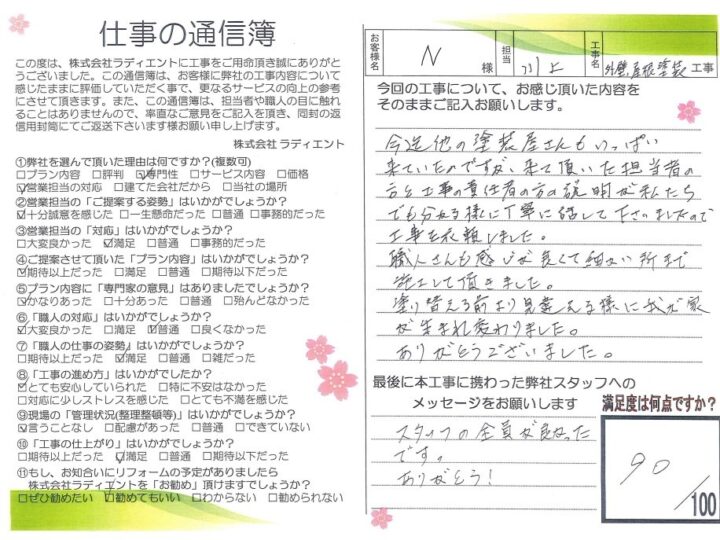 仕事の通信簿
この度は、株式会社ラディエントに工事をご用命頂き誠にありがと
うございました。この通信簿は、お客様に弊社の工事内容について
感じたままに評価していただく事で、更なるサービスの向上の参考
にさせて頂きます。また、この通信簿は、担当者や職人の目に触れ
ることはありませんので、率直なご意見をご記入を頂き、同封の返
信用封筒にてご返送下さいます様お願い申し上げます。
株式会社 ラディエント
①弊社を選んで頂いた理由は何ですか?(複数可)
□プラン内容 □評判 ☑専門性 □サービス内容 □価格
☑営業担当の対応 □建てた会社だから □当社の場所
②営業担当の「ご提案する姿勢」はいかがでしょうか?
☑十分誠意を感じた □一生懸命だった □普通 □事務的だった
③営業担当の「対応」はいかがでしょうか?
□大変良かった ☑満足 □普通 □事務的だった
④ご提案させて頂いた「プラン内容」はいかがでしょうか?
☑期待以上だった □満足 □普通 □期待以下だった
⑤プラン内容に「専門家の意見」はありましたでしょうか?
☑かなりあった □十分あった □普通 □殆んどなかった
⑥「職人の対応」はいかがでしょうか?
☑大変良かった □満足 ☑普通 □良くなかった
⑦「職人の仕事の姿勢」はいかがでしょうか?
□期待以上だった ☑満足 □普通 □雑だった
⑧「工事の進め方」はいかがでしたか?
☑とても安心していられた □特に不安はなかった
□対応に少しストレスを感じた □とても不満を感じた
⑨現場の「管理状況(整理整頓等)」はいかがでしょうか?
☑言うことなし □配慮があった □普通 □できていない
⑩「工事の仕上がり」はいかがでしょうか?
□期待以上だった ☑満足 □普通 □期待以下だった
⑪もし、お知合いにリフォームの予定がありましたら
株式会社ラディエントを「お勧め」頂けますでしょうか?
□ぜひ勧めたい ☑勧めてもいい □わからない □勧められない
お客様名 N 様 担当 川上 工事名 外壁屋根塗装 工事
今回の工事について、お感じ頂いた内容を
そのままご記入お願いします。
今迄他の塗装屋さんもいっぱい
来ていたのですが、来て頂いた担当者の
方と工事の責任者の方の説明が私たち
でも分る様に丁寧に話して下さいましたので
工事を依頼しました。
職人さんも感じが良くて細かい所まで
施工して頂きました。
塗り替える前より見違える様に我が家
が生まれ変わりました。
ありがとうございました。
最後に本工事に携わった弊社スタッフへの
メッセージをお願いします
スタッフの全員が良かった
です。
ありがとう!
満足度は何点ですか?
90
/100